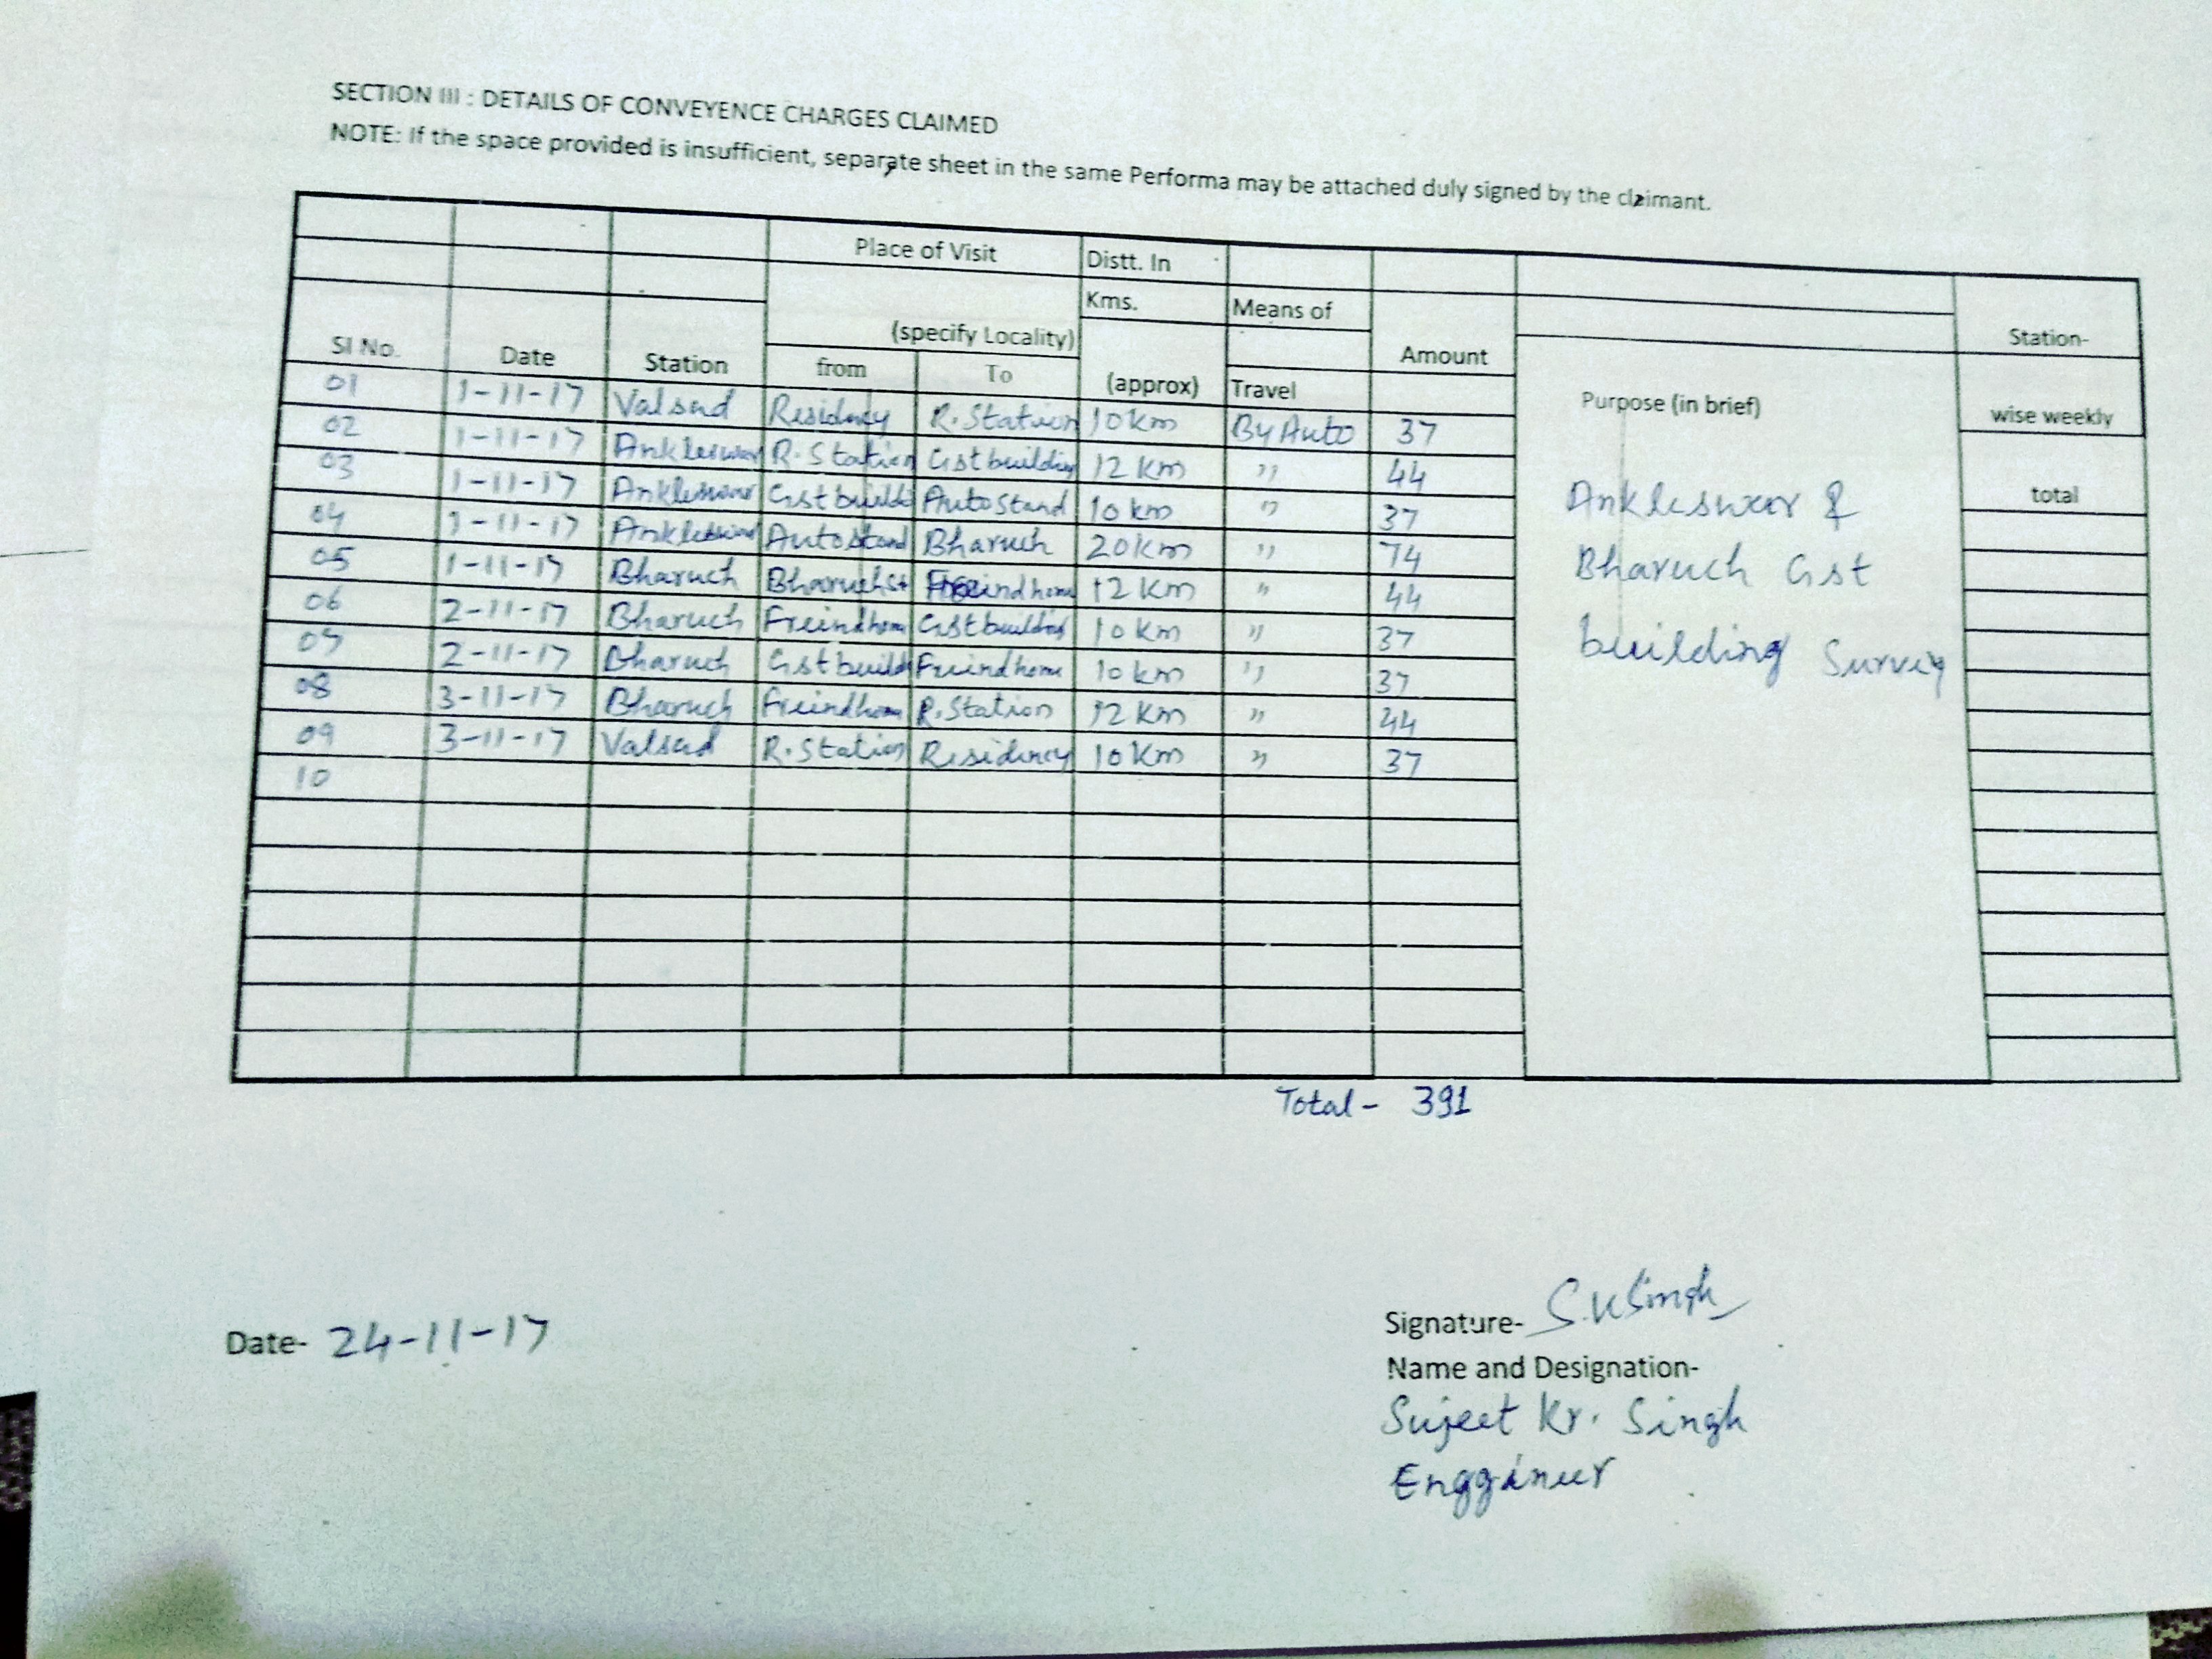 SECTION III : DETAILS OF CONVEYENCE CHARGES CLAIMED
NOTE: If the space provided is insufficient, separate sheet in the same Performa may be attached duly signed by the claimant.
Place of Visit Distt. In
Kms. Means of
(specify Locality) Station-
Sl No. Date Station from To (approx) Travel Amount Purpose (in brief) wise weekly
total
01 1-11-17 Valsad Residncy R.Station 10km By Auto 37
02 1-11-17 Ankleswar R.Station Gst building 12 km " 44
03 1-11-17 Ankleswar Gst buildi Auto Stand 10 km " 37
04 1-11-17 Ankleswar Auto stand Bharuch 20km " 74
05 1-11-17 Bharuch Bharuch St Freind home 12 km " 44
06 2-11-17 Bharuch Freind hom Gst building 10 km " 37
07 2-11-17 Bharuch Gst build Freind home 10 km " 37
08 3-11-17 Bharuch Freind hom R.Station 12 km " 44
09 3-11-17 Valsad R.Station Residency 10 km " 37
10
Ankleswar &
Bharuch Gst
building Survey
Total - 391
Date- 24-11-17
Signature- S.K Singh
Name and Designation-
Sujeet Kr. Singh
Enggineer